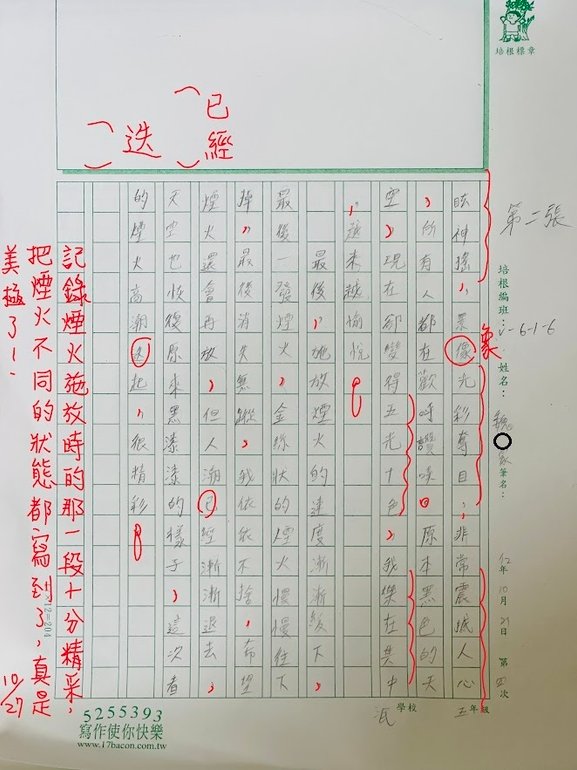 培根標章
第二張
培根編班：
姓名：
筆名：
年10月
日
第四次
五年級
學校
眩神搖，景像光彩奪目，非常震撼人心
，所有人都在歡呼讚嘆。原本黑色的天
空，現在卻變得五光十色，我樂在其中
，越來越愉悅。
最後，施放煙火的速度漸漸緩下
最後一發煙火，金絲狀的煙火慢慢往下
掉，最後消失無蹤，我依依不捨，希望
煙火還會再放，但人潮已經漸漸退去，
天空也恢復原來黑漆漆的樣子，這次
的煙火高潮迭起，很精彩。
象
（已經）
（迭）
記錄煙火施放時的那一段十分精采，
把煙火不同的狀態都寫到了，真是
美極了！
10/27
×12=204
5255393
寫作使你快樂
www.17bacon.com.tw